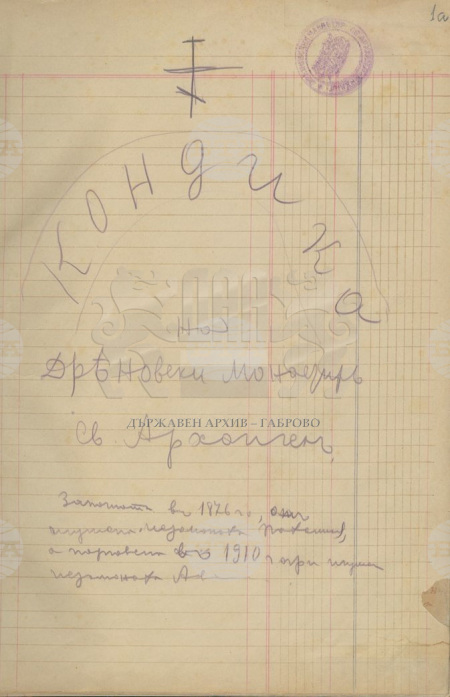 1а
Кондика
на
Дрѣновски Монастирь
ДЪРЖАВЕН АРХИВ – ГАБРОВО
Св. Архангелъ
Започната въ 1876 г., при
игумена иеромонаха
а подновена въ 1910 г. при игумена
иеромонаха